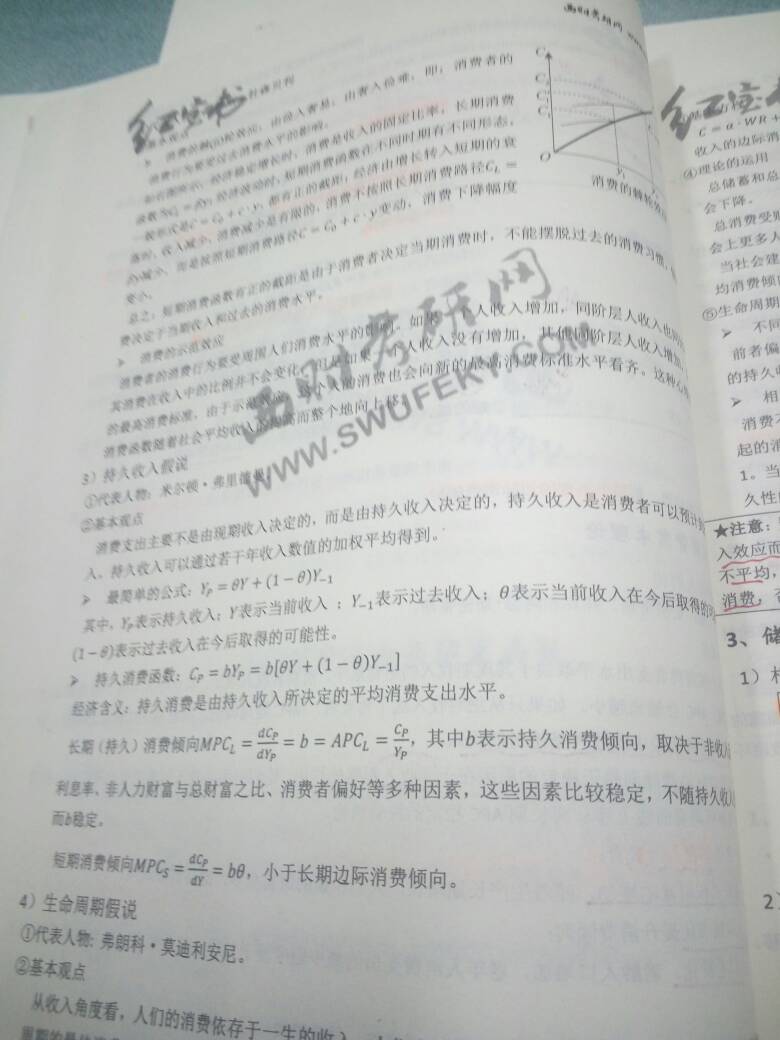 西财考研网
红宝书
消费的棘轮效应,由俭入奢易,由奢入俭难,即:消费者的
消费行为要受过去消费水平的影响。
如右图所示,经济稳定增长时,消费是收入的固定比率,长期消费
函数为C_L = βy,经济波动时,短期消费函数在不同时期有不同形态,
一般形式是C = C₀ + c·y,都有正的截距,经济由增长转入短期的衰
落时,收入减少,消费减少是有限的,消费不按照长期消费路径C_L =
βy减少,而是按照短期消费路径C = C₀ + c·y变动,消费下降幅度
变小。
总之,短期消费函数有正的截距是由于消费者决定当期消费时,不能摆脱过去的消费习惯,
费决定于当期收入和过去的消费水平。
➢ 消费的示范效应
消费者的消费行为要受周围人们消费水平的影响。如果一个人收入增加,同阶层人收入也
其消费在收入中的比例并不会变化。可是如果一个人收入没有增加,其他同阶层人收入增加,
的最高消费标准,由于示范效应,这个人的消费也会向新的最高消费标准水平看齐。这种心
消费函数随着社会平均收入的提高而整个地向上移。
西财考研网
WWW.SWUFEKY.COM
3)持久收入假说
①代表人物:米尔顿·弗里德曼
②基本观点
消费支出主要不是由现期收入决定的,而是由持久收入决定的,持久收入是消费者可以预计
入。持久收入可以通过若干年收入数值的加权平均得到。
➢ 最简单的公式:Y_P = θY + (1 − θ)Y₋₁
其中,Y_P表示持久收入;Y表示当前收入 ;Y₋₁表示过去收入;θ表示当前收入在今后取得的可
(1 − θ)表示过去收入在今后取得的可能性。
➢ 持久消费函数:C_P = bY_P = b[θY + (1 − θ)Y₋₁]
经济含义:持久消费是由持久收入所决定的平均消费支出水平。
长期(持久)消费倾向MPC_L = dC_P/dY_P = b = APC_L = C_P/Y_P,其中b表示持久消费倾向,取决于非收
利息率、非人力财富与总财富之比、消费者偏好等多种因素,这些因素比较稳定,不随持久收入
而b稳定。
短期消费倾向MPC_S = dC_P/dY = bθ,小于长期边际消费倾向。
4)生命周期假说
①代表人物:弗朗科·莫迪利安尼。
②基本观点
从收入角度看,人们的消费依存于一生的收入
C
O
y₁
消费的棘轮效应
红宝书
C = a·WR +
收入的边际消
④理论的运用
总储蓄和总
会下降。
总消费受
会上更多人
当社会建
均消费倾
⑤生命周期
➢ 不同
前者偏
的持久
➢ 相
消费
起的消
1。当
久性
★注意:
入效应而
不平均,
消费,
3、储
1)
2)